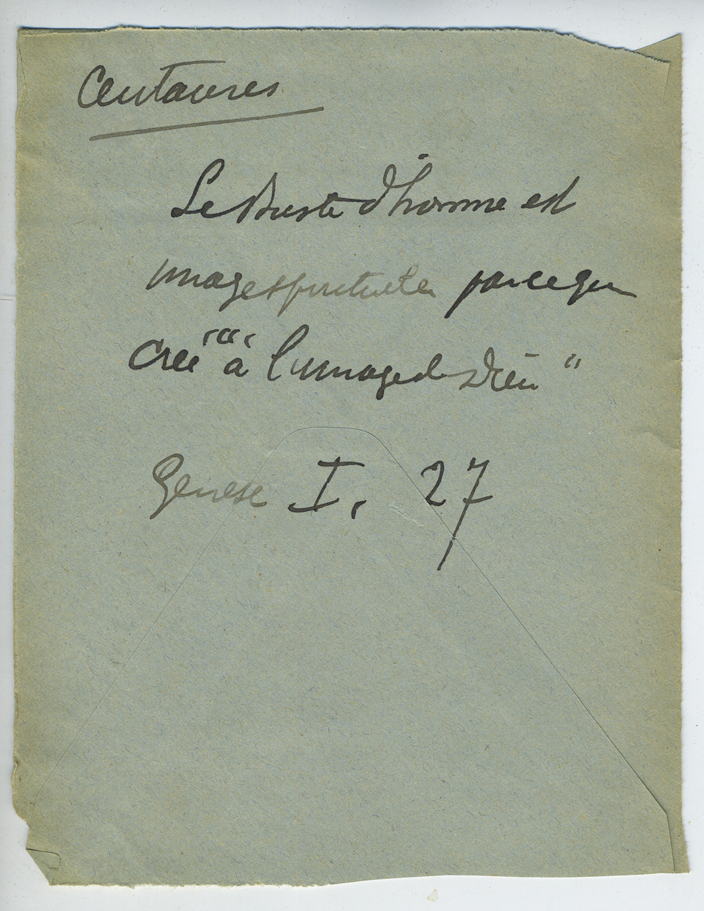 Centaures
Le Buste d'homme est
image spirituelle parce que
créé "à l'image de Dieu"
Genese I, 27